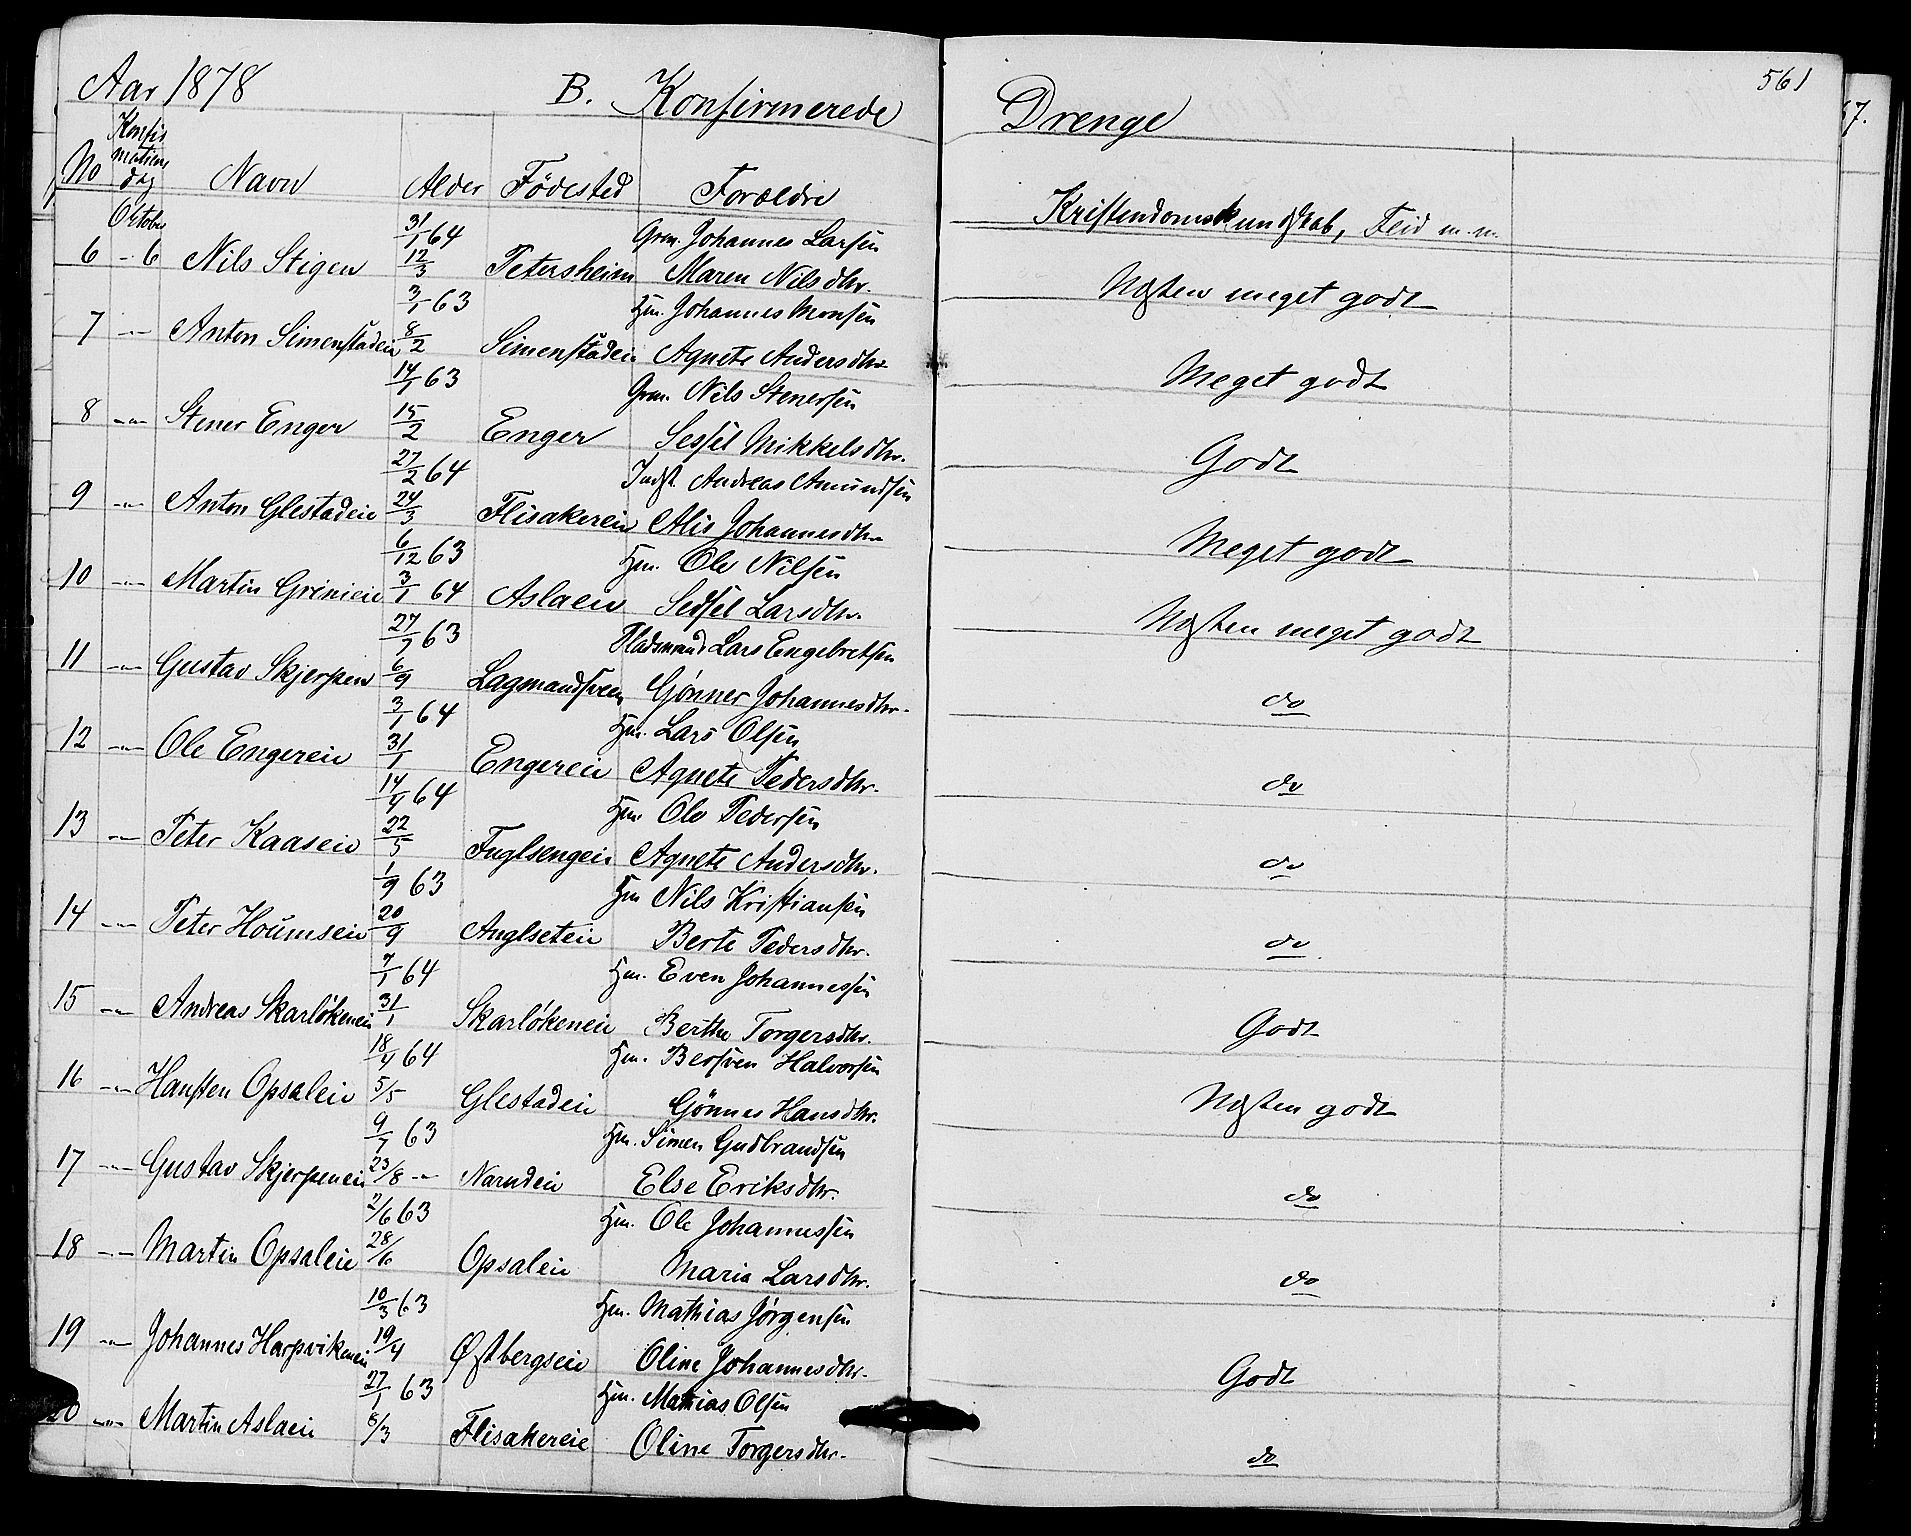 Aar 1878 B. Konfirmerede Drenge 561
No Konfirmations dag Navn Alder Födested Forældre Kristendomskundskab, Flid m. m.
Oktober 31/1 64 Grm. Johannes Larsen
6 - 6 Nils Stigen 12/3 Petersheim Maren Nilsdtr. Næsten meget godt
3/1 63 Hm. Johannes Monsen
7 -"- Anton Simenstadeie 8/2 Simenstadeie Agnete Andersdtr. Meget godt
14/1 63 Grm. Nils Stenersen
8 -"- Stener Enger 15/2 Enger Sessel Mikkelsdtr. Godt
27/2 64 Indst. Andreas Amundsen
9 -"- Anton Glestadeie 24/3 Flisakereie Alis Johannesdtr. Meget godt
6/12 63 Hm. Ole Nilsen
10 -"- Martin Grinieie 3/1 64 Aslaeie Sedsel Larsdtr. Næsten meget godt
27/7 63 Pladsmand Lars Engebretsen
11 -"- Gustav Skjerpen 6/9 Lagmandsveen Gönner Johannesdtr. do
3/1 64 Hm. Lars Olsen
12 -"- Ole Engereie 31/1 Engereie Agnete Pedersdtr. do
14/4 64 Hm. Ole Pedersen
13 -"- Peter Kaaseie 22/5 Fuglsengeie Agnete Andersdtr. do
1/9 63 Hm Nils Kristiansen
14 -"- Peter Houmseie 20/9 Anglseteie Berte Pedersdtr. do
7/1 64 Hm. Even Johannessen
15 -"- Andreas Skarlökeneie 31/1 Skarlökeneie Berthe Torgersdtr. Godt
18/4 64 Hm. Bersven Halvorsen
16 -"- Hansten Opsaleie 5/5 Glestadeie Gönner Hansdtr. Næsten godt
9/7 63 Hm. Simen Gudbrandsen
17 -"- Gustav Skjerpeneie 23/8 -"- Narudeie Else Eriksdtr. do
2/6 63 Hm. Ole Johannessen
18 -"- Martin Opsaleie 28/6 Opsaleie Maria Larsdtr. do
10/3 63 Hm. Mathias Jørgensen
19 -"- Johannes Harpvikeneie 19/4 Østbergseie Oline Johannesdtr. Godt
27/1 63 Hm. Mathias Olsen
20 -"- Martin Aslaeie 8/3 Flisakereie Oline Torgersdtr. do